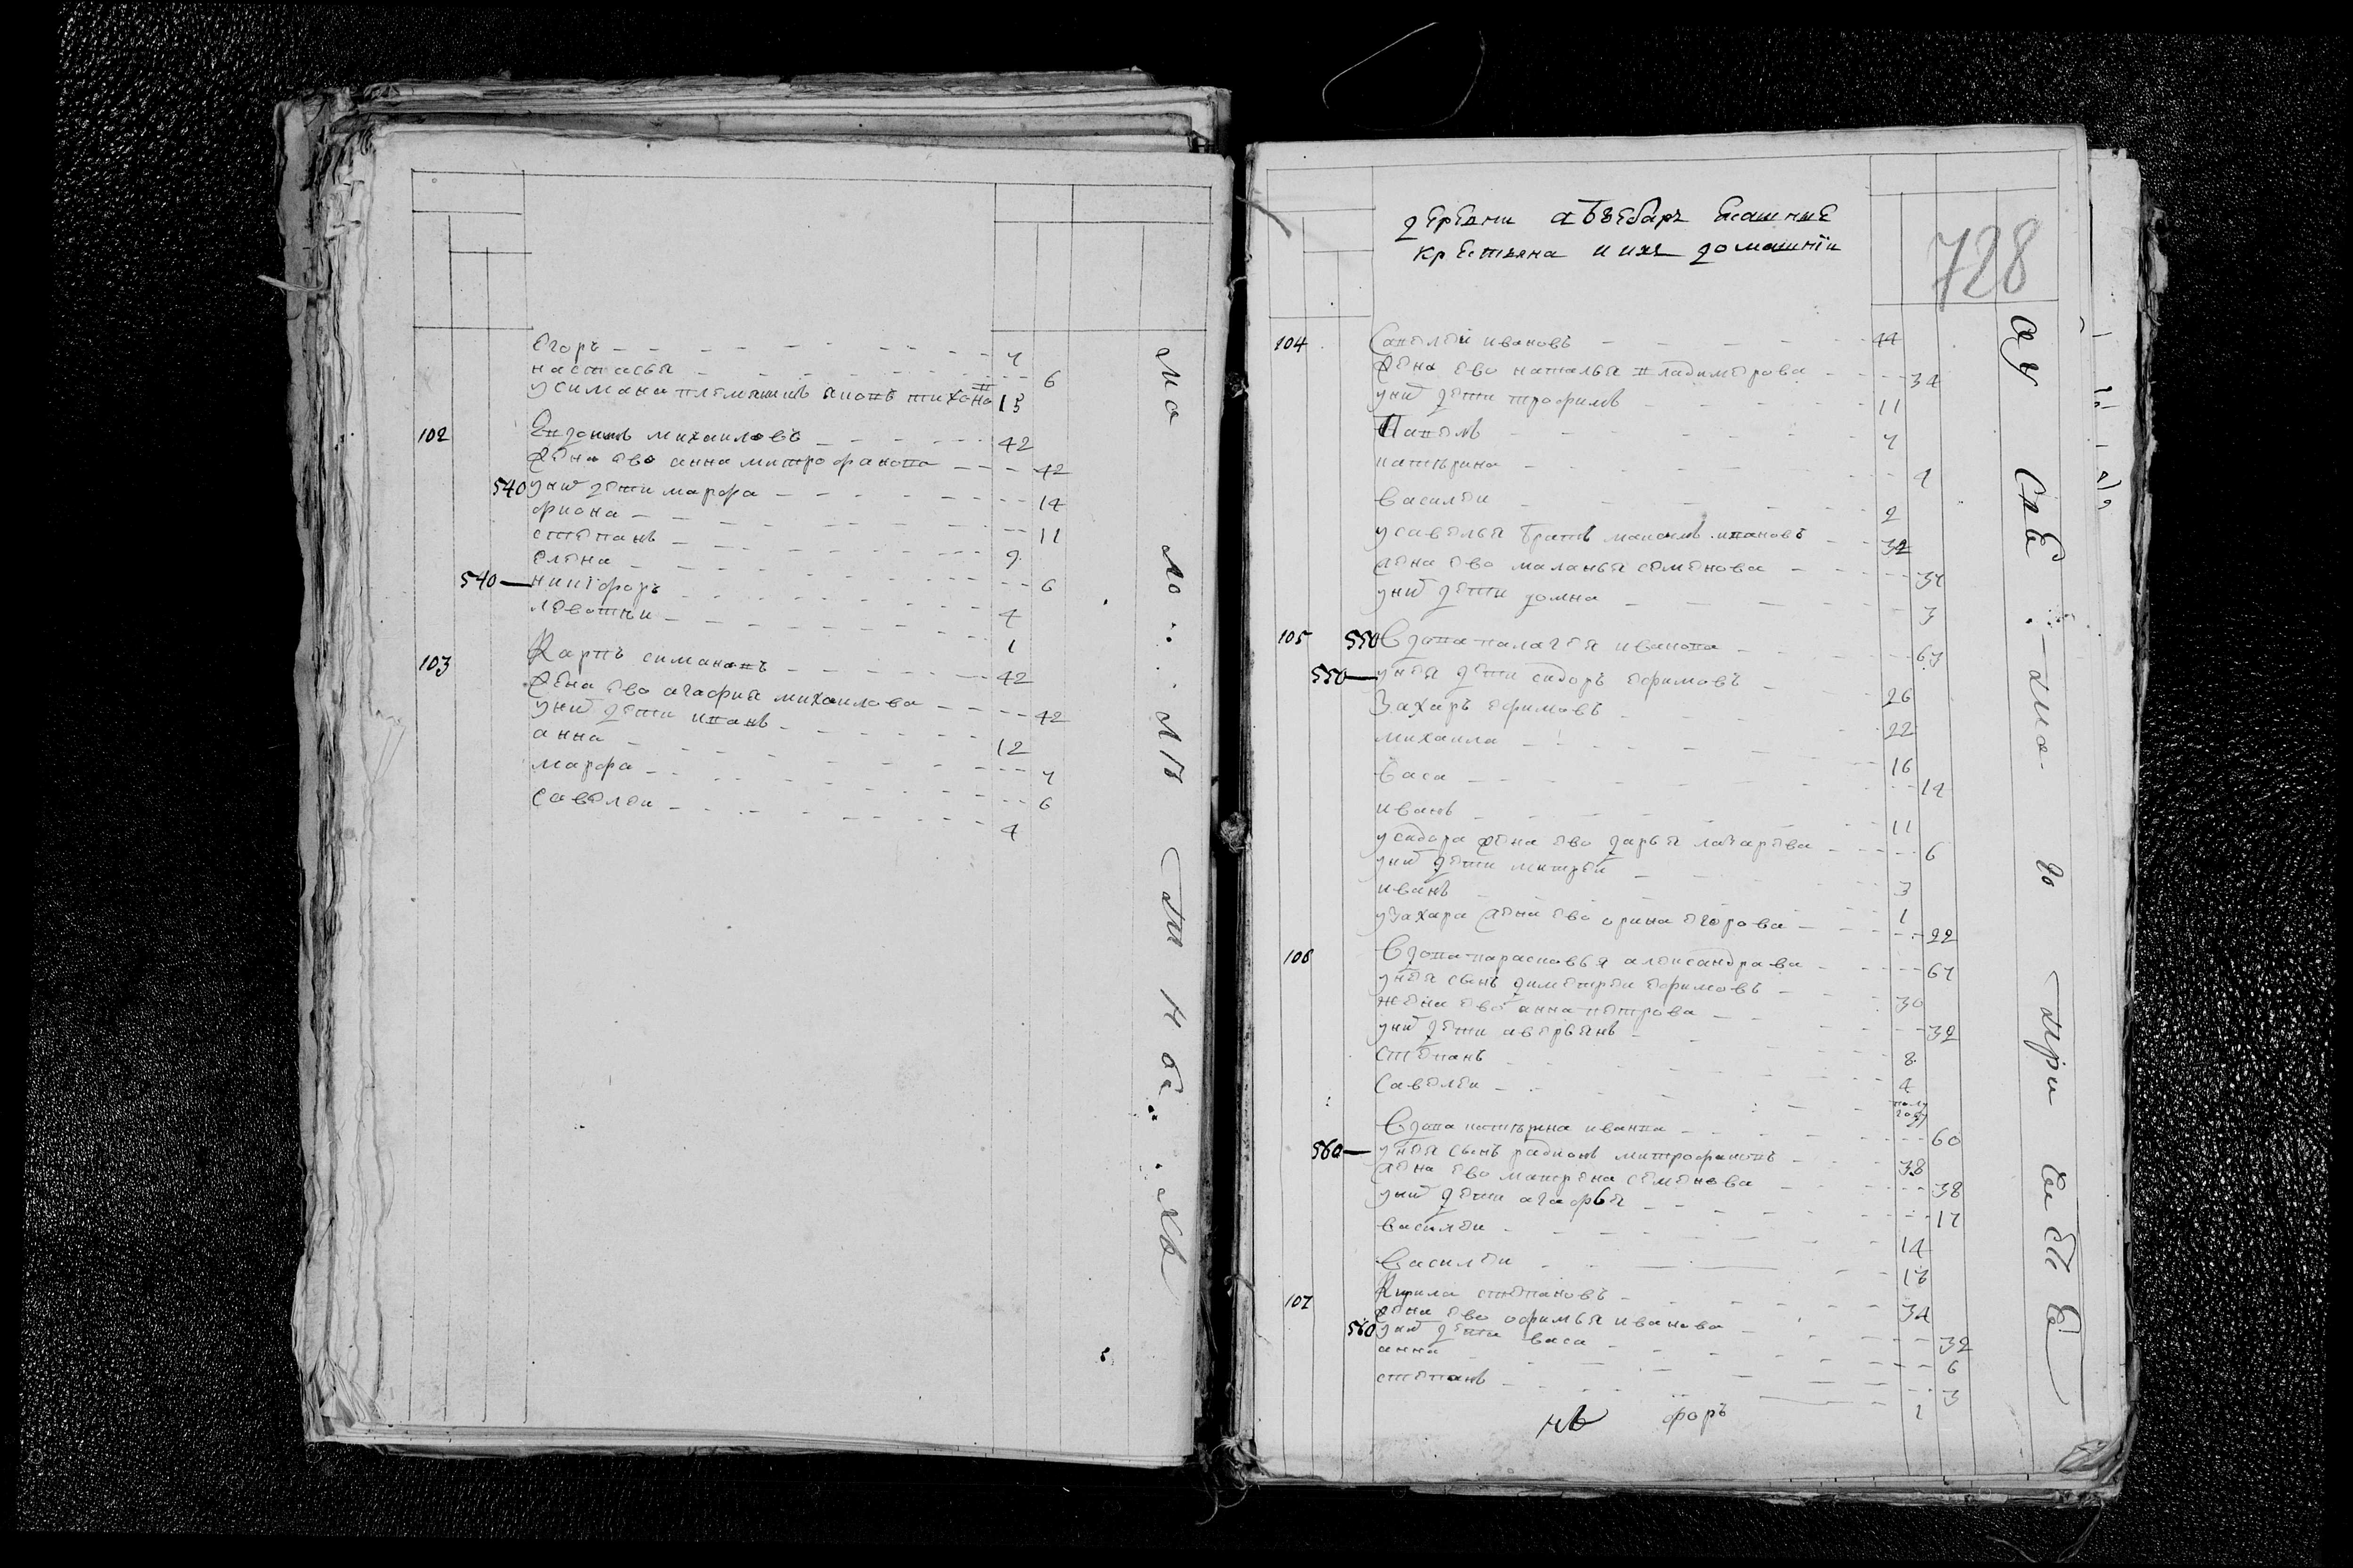 Егоръ 7
настасья 6
усимана племянникъ яковъ тихоно 15
102 Евдокимъ михаиловъ 42
жена ево анна митрофанова 42
540 уних дети марфа 14
фиона 11
степанъ 9
елена 6
540 никифоръ 4
леоантеи 1
103 Карпъ симановъ 42
жена ево агафия михаилова 42
уних дети иванъ 12
анна 7
марфа 6
савелеи 4
деревни ясашные
крестьяна и ихъ домашнiи
728
104 Савелеи ивановъ 44
жена ево наталья владимерова 34
уних дети трофимъ 11
Павелъ 7
катерина 4
василеи 2
усавелья братъ максимъ ивановъ 32
жена ево маланья семенова 37
уних дети домна 3
105 550 Вдова палагея иванова 67
550 унея дети сидоръ ефимовъ 26
Захаръ ефимовъ 22
михаила 16
васа 14
иванъ 11
усидора жена ево дарья лазарева 6
уних дети митреи 3
иванъ 1
узахара жена ево орина егорова 22
106 Вдова парасковья александрава 67
унея сынъ диметреи ефимовъ 30
жена ево анна петрова 32
уних дети аверьянъ 8
степанъ 4
Савелеи полу году
Вдова катерина иванва 60
560 унея сынъ радионъ митрофановъ 38
жена ево матрена семенова 38
уних дети агафья 17
василеи 14
Василеи 13
107 Кирила степановъ 34
жена ево офимья иванова 32
560 уних дети васа 6
анна 3
степанъ 1